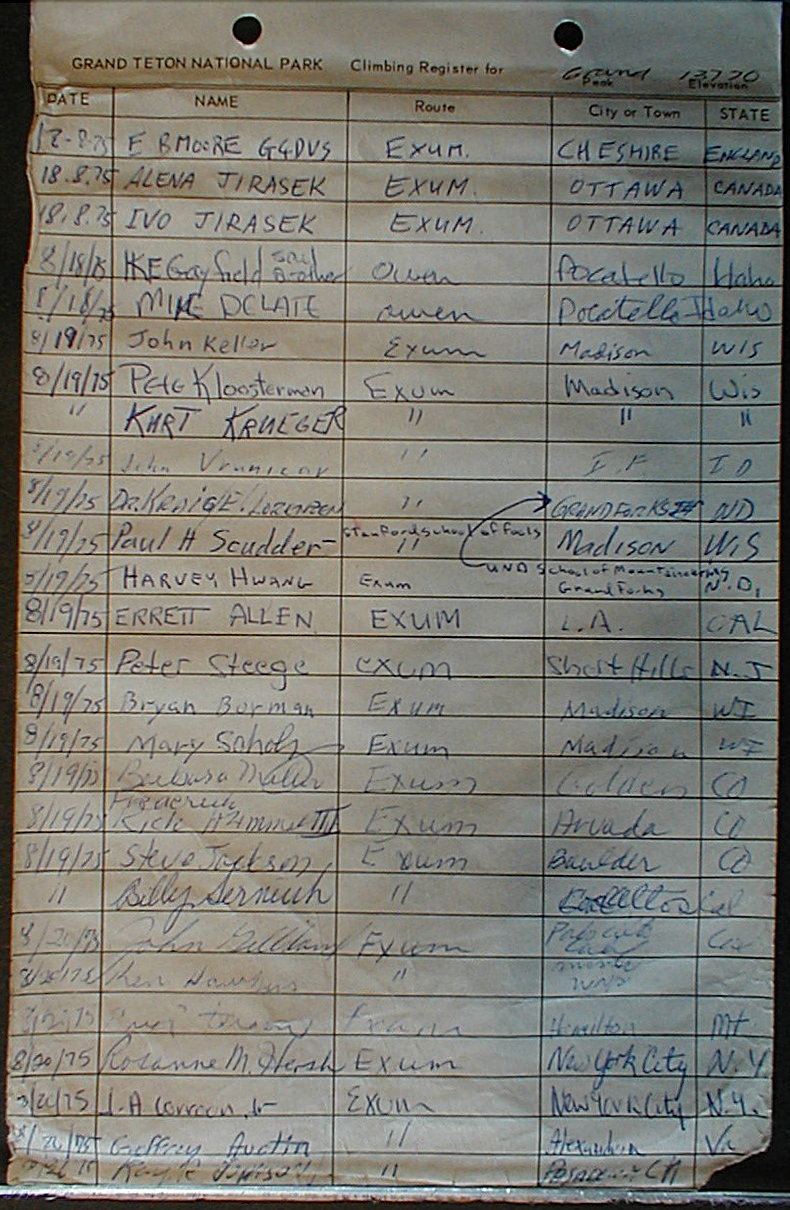 GRAND TETON NATIONAL PARK Climbing Register for Grand 13770
Peak Elevation
DATE NAME Route City or Town STATE
E B MOORE EXUM. CHESHIRE ENGLAND
18.8.75 ALENA JIRASEK EXUM. OTTAWA CANADA
18.8.75 IVO JIRASEK EXUM. OTTAWA CANADA
8/18/75 Owen Pocatello Idaho
8/18/75 MIKE owen Pocatello Idaho
8/19/75 John Keller Exum Madison WIS
8/19/75 Pete Kloosterman Exum Madison Wis
" KURT KRUEGER " " "
8/19/75 John " I.F. ID
8/19/75 DR. KRAIG E. LORENZEN " GRAND FORKS ND
8/19/75 Paul H Scudder - Stanford school of fools " Madison WIS
UND School of Mountaineering
8/19/75 HARVEY HWANG Exum Grand Forks N.D.
8/19/75 ERRETT ALLEN EXUM L.A. CAL
8/19/75 Peter Steege exum Short Hills N.J
8/19/75 Bryan Borman Exum Madison WI
8/19/75 Mary Scholz Exum Madison WI
8/19/75 Barbara Exum Golden CO
Frederick
8/19/75 Rick III Exum Arvada CO
8/19/75 Steve Jackson, Exum Boulder CO
" Billy " Cal
8/20/75 John Exum
8/20/75 Ken "
8/20/75 Exum Hamilton Mt
8/20/75 Rosanne M. Hersh Exum New York City N.Y.
8/20/75 J.A. Jr Exum New York City N.Y.
8/20/75 Geffrey Austin " Alexandria Va
"